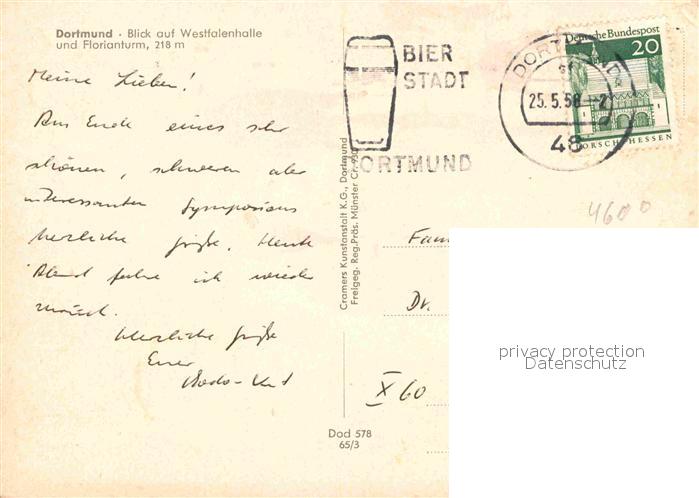 Dortmund · Blick auf Westfalenhalle
und Florianturm, 218 m
Meine Lieben!
Am Ende eines sehr
schönen, schweren aber
interessanten Symposions
herzliche Grüße. Heute
Abend fahre ich wieder
zurück.
Herzliche Grüße
Euer
BIER
STADT
DORTMUND
DORTMUND
25.5.
48
Deutsche Bundespost
20
LORSCH · HESSEN
4600
Cramers Kunstanstalt K.G., Dortmund
Freigeg. Reg.Präs. Münster
Fam
Dr.
X 60
Dad 578
65/3
privacy protection
Datenschutz